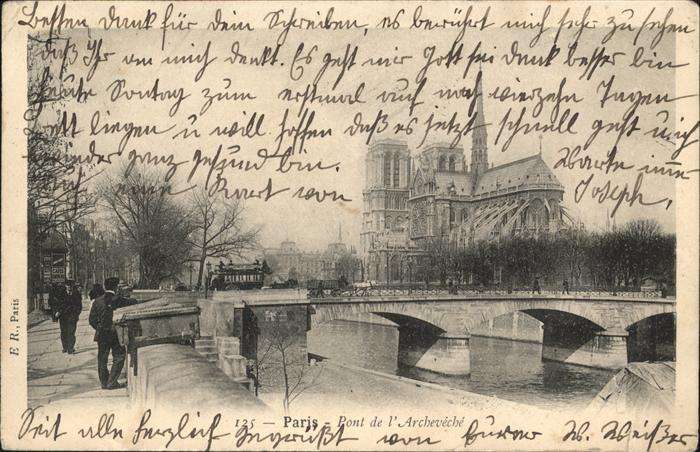 Besten Dank für dein Schreiben, es berührt mich sehr zu sehen
daß Ihr an mich denkt. Es geht mir Gott sei Dank besser bin
heute Sontag zum erstmal auf nach vierzehn Tagen
Bett liegen u will hoffen daß es jetzt schnell geht u ich
wieder ganz gesund bin.
Warte immer
eine Kart von Joseph,
E. R., Paris
125 — Paris - Pont de l'Archevêché
Seit alle herzlich gegrüßt von Eurer W. Weißer